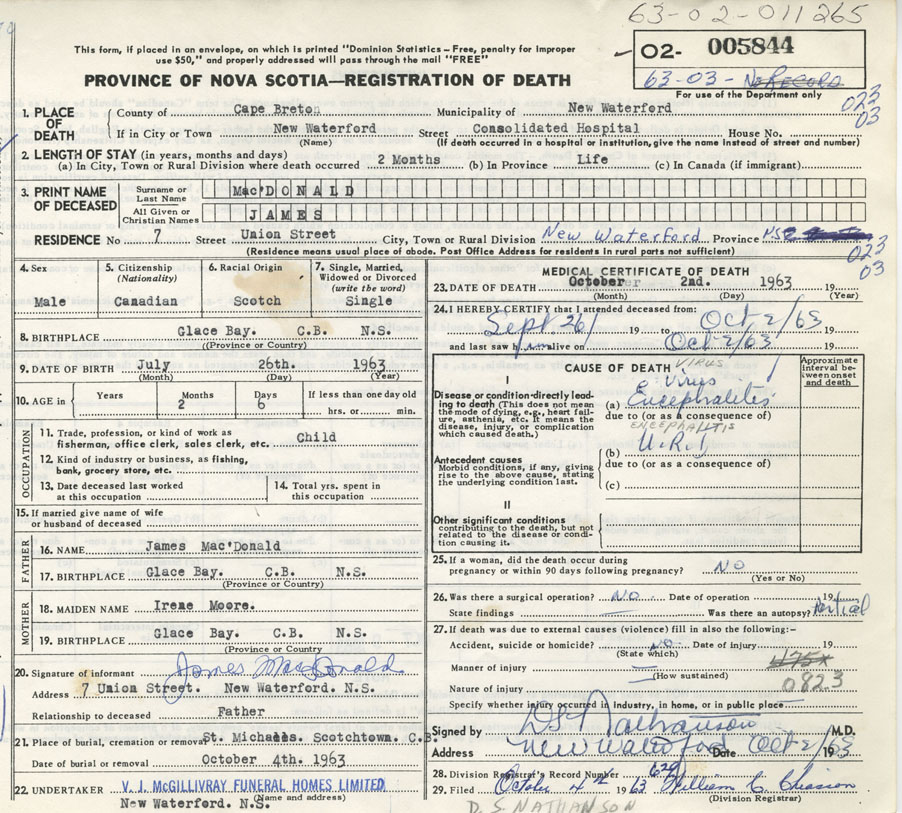 63-02-011265
This form, if placed in an envelope, on which is printed "Dominion Statistics – Free, penalty for improper
use $50," and properly addressed will pass through the mail "FREE"
02- 005844
63-03- No Record
For use of the Department only
023
03
PROVINCE OF NOVA SCOTIA—REGISTRATION OF DEATH
1. PLACE OF DEATH County of Cape Breton Municipality of New Waterford
If in City or Town New Waterford Street Consolidated Hospital House No.
(Name) (If death occurred in a hospital or institution, give the name instead of street and number)
2. LENGTH OF STAY (in years, months and days)
(a) In City, Town or Rural Division where death occurred 2 Months (b) In Province Life (c) In Canada (if immigrant)
3. PRINT NAME OF DECEASED Surname or Last Name Mac'DONALD
All Given or Christian Names JAMES
RESIDENCE No 7 Street Union Street City, Town or Rural Division New Waterford Province NS
(Residence means usual place of abode. Post Office Address for residents in rural parts not sufficient)
023
03
4. Sex 5. Citizenship (Nationality) 6. Racial Origin 7. Single, Married, Widowed or Divorced (write the word)
Male Canadian Scotch Single
8. BIRTHPLACE Glace Bay. C.B. N.S.
(Province or Country)
9. DATE OF BIRTH July 26th. 1963
(Month) (Day) (Year)
10. AGE in Years Months Days If less than one day old
2 6 hrs. or min.
OCCUPATION
11. Trade, profession, or kind of work as
fisherman, office clerk, sales clerk, etc. Child
12. Kind of industry or business, as fishing,
bank, grocery store, etc.
13. Date deceased last worked at this occupation 14. Total yrs. spent in this occupation
15. If married give name of wife
or husband of deceased
FATHER
16. NAME James Mac'Donald
17. BIRTHPLACE Glace Bay. C.B. N.S.
(Province or Country)
MOTHER
18. MAIDEN NAME Irene Moore.
19. BIRTHPLACE Glace Bay. C.B. N.S.
(Province or Country)
20. Signature of informant James MacDonald
Address 7 Union Street. New Waterford. N.S.
Relationship to deceased Father
21. Place of burial, cremation or removal St. Michaels. Scotchtown. C.B.
Date of burial or removal October 4th. 1963
22. UNDERTAKER V. J. McGILLIVRAY FUNERAL HOMES LIMITED
New Waterford. N.S. (Name and address)
MEDICAL CERTIFICATE OF DEATH
23. DATE OF DEATH October 2nd. 1963 19
(Month) (Day) (Year)
24. I HEREBY CERTIFY that I attended deceased from:
Sept 26/ 19 to Oct 2/63 19
and last saw him alive on Oct 2/63 19
CAUSE OF DEATH Approximate interval between onset and death
VIRUS
I
Disease or condition directly leading to death (This does not mean the mode of dying, e.g., heart failure, asthenia, etc. It means the disease, injury, or complication which caused death.)
(a) Virus Encephalites
due to (or as a consequence of)
ENCEPHALITIS
Antecedent causes
Morbid conditions, if any, giving rise to the above cause, stating the underlying condition last.
(b) U.R.I
due to (or as a consequence of)
(c)
II
Other significant conditions
contributing to the death, but not related to the disease or condition causing it.
25. If a woman, did the death occur during
pregnancy or within 90 days following pregnancy? NO
(Yes or No)
26. Was there a surgical operation? NO Date of operation 19
State findings Was there an autopsy? Partial
27. If death was due to external causes (violence) fill in also the following:–
Accident, suicide or homicide? NO Date of injury 19
(State which)
475x
Manner of injury
(How sustained)
0823
Nature of injury
Specify whether injury occurred in industry, in home, or in public place
Signed by DS Nathanson M.D.
Address New Waterford Date Oct 2/ 1963
28. Division Registrar's Record Number 629
29. Filed October 4th 1963 William C Chiasson
(Division Registrar)
D. S NATHANSON